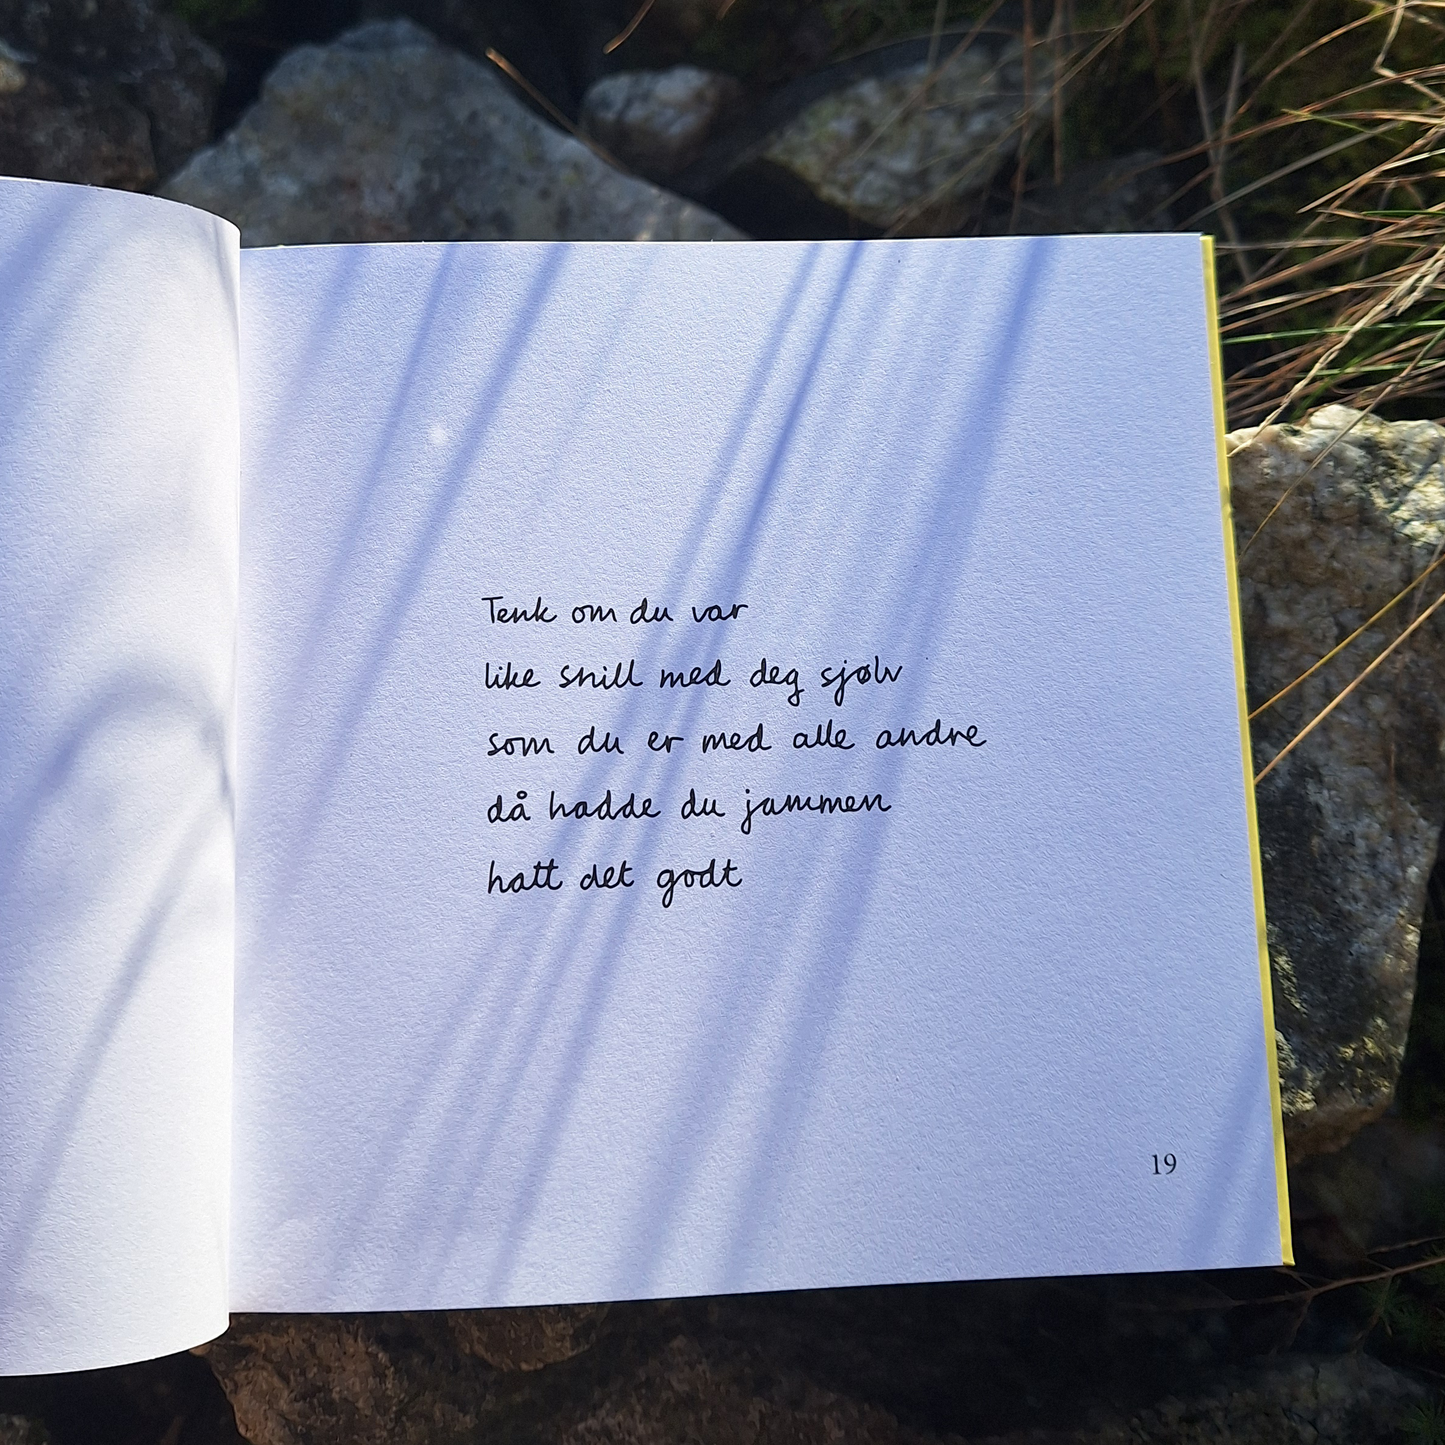 Tenk om du var
like snill med deg sjølv
som du er med alle andre
då hadde du jammen
hatt det godt
19